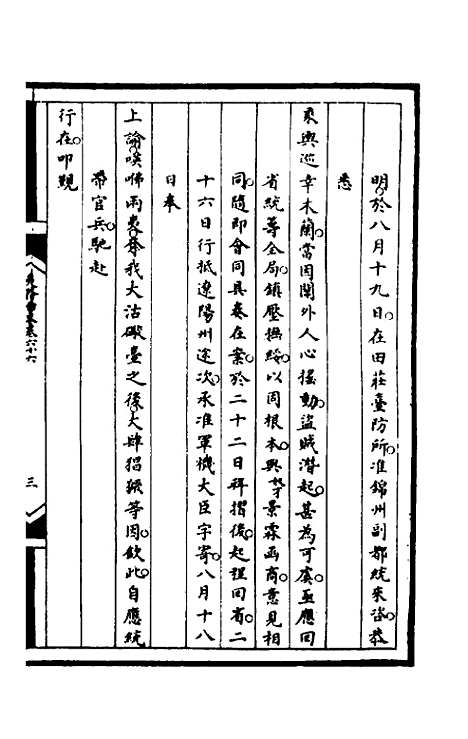 明。於八月十九日。在田莊臺防所。准錦州副都統來咨。恭
悉
乘輿巡幸木蘭。當因關外人心搖動。盜賊潛起。甚為可虞。亟應回
省統籌全局。鎮壓撫綏。以固根本。與奴才景霖函商。意見相
同。隨即會同具奏在案。於二十二日拜摺後。起程回省。二
十六日行抵遼陽州途次。承准軍機大臣字寄。八月十八
日奉
上諭。唤咈兩夷。奪我大沽礮臺之後。大肆猖獗等因。欽此。自應統
帶官兵馳赴
行在。叩覲
卷六十六
三